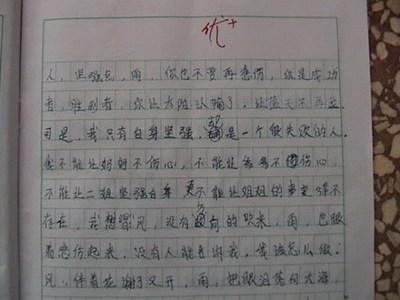 优+
人，坚强点，雨，你也不要再悲伤，你是成功
者，胜利者，你让太阳认输了，让蓝天不再蓝
可是，我只有自身坚强，却是一个很失败的人。
我不能让妈妈不伤心，不能让爸爸不伤心，
不能让二姐坚强自身，更不能让姐姐的事变得不
存在，我想跟风，没有方向的吹来，雨，也跟
着悲伤起来，没有人能告诉我，我该怎么做。
风，伴着花谢了又开，雨，把眼泪落向大海，